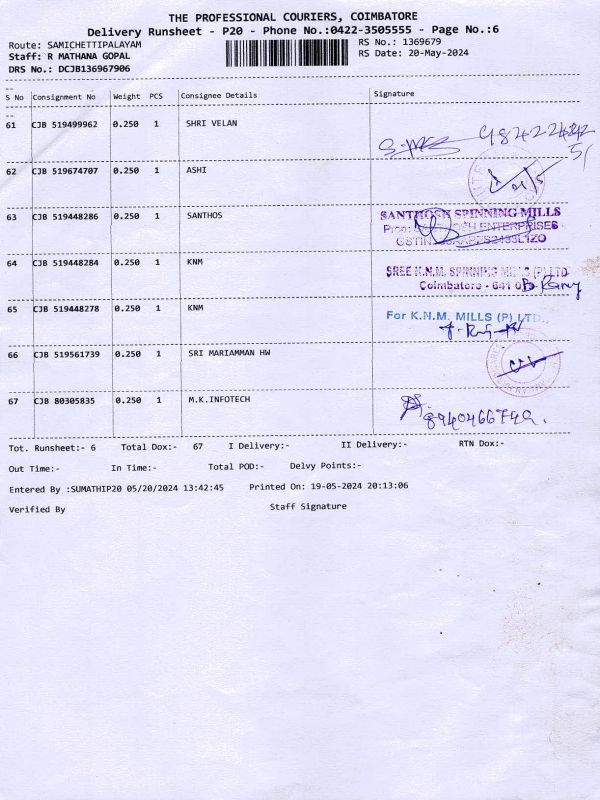 THE PROFESSIONAL COURIERS, COIMBATORE
Delivery Runsheet - P20 - Phone No.:0422-3505555 - Page No.:6
Route: SAMICHETTIPALAYAM
RS No.: 1369679
Staff: R MATHANA GOPAL
RS Date: 20-May-2024
DRS No.: DCJB136967906
S No Consignment No Weight PCS Consignee Details Signature
61 CJB 519499962 0.250 1 SHRI VELAN
62 CJB 519674707 0.250 1 ASHI
63 CJB 519448286 0.250 1 SANTHOS
SANTHOSH SPINNING MILLS
64 CJB 519448284 0.250 1 KNM
SREE K.N.M. SPINNING MILLS (P) LTD
Coimbatore - 641
65 CJB 519448278 0.250 1 KNM
For K.N.M. MILLS (P) LTD.,
66 CJB 519561739 0.250 1 SRI MARIAMMAN HW
67 CJB 80305835 0.250 1 M.K.INFOTECH
Tot. Runsheet:- 6 Total Dox:- 67 I Delivery:- II Delivery:- RTN Dox:-
Out Time:- In Time:- Total POD:- Delvy Points:-
Entered By :SUMATHIP20 05/20/2024 13:42:45 Printed On: 19-05-2024 20:13:06
Verified By Staff Signature